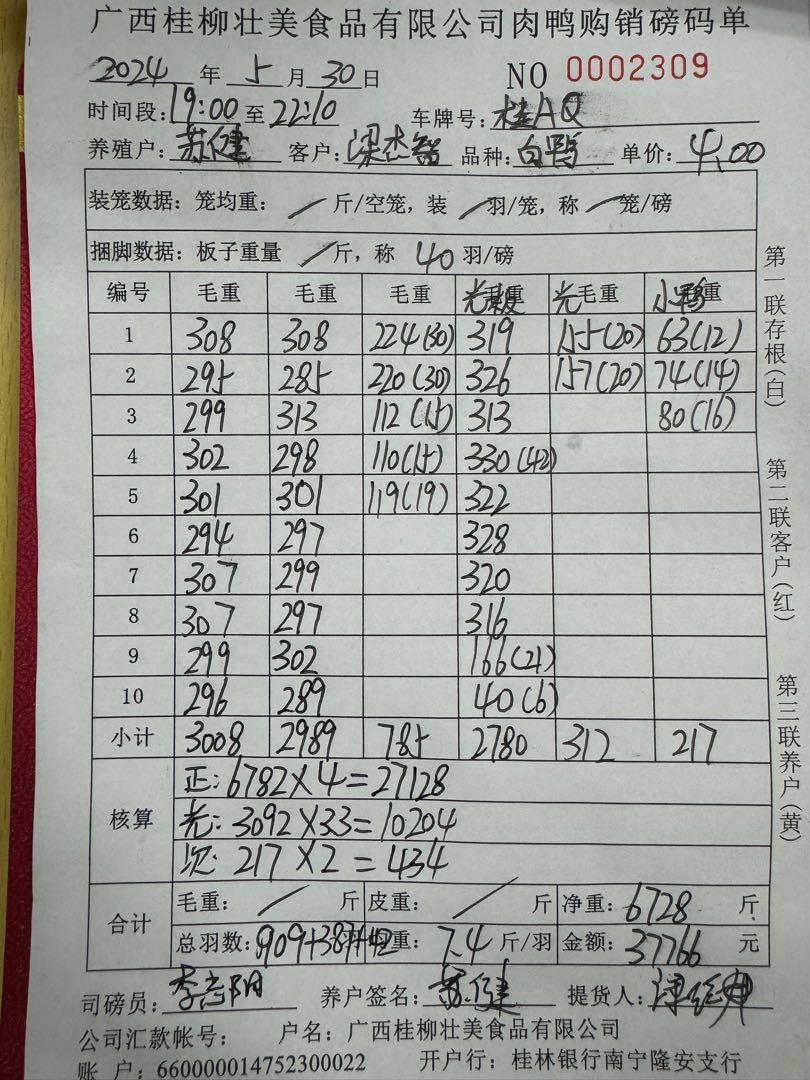 广西桂柳壮美食品有限公司肉鸭购销磅码单
2024 年 5 月 30 日 NO 0002309
时间段: 19:00 至 22:10 车牌号: 桂AQ
养殖户: 苏健 客户: 梁杰智 品种: 白鸭 单价: 4.00
装笼数据: 笼均重: / 斤/空笼, 装 / 羽/笼, 称 / 笼/磅
捆脚数据: 板子重量 / 斤, 称 40 羽/磅
编号 毛重 毛重 毛重 光 毛重 光 毛重 小鸭 毛重
1 308 308 224(30) 319 155(20) 63(12)
2 295 285 220(30) 326 157(20) 74(14)
3 299 313 112(15) 313 80(16)
4 302 298 110(15) 330(42)
5 301 301 119(19) 322
6 294 297 328
7 307 299 320
8 307 297 316
9 299 302 166(21)
10 296 289 40(6)
小计 3008 2989 785 2780 312 217
核算
正: 6782×4=27128
光: 3092×33=10204
次: 217×2=434
合计
毛重: / 斤 皮重: / 斤 净重: 6728 斤
总羽数: 909+387+42 均重: 7.4 斤/羽 金额: 37766 元
司磅员: 李志阳 养户签名: 苏健 提货人:
公司汇款帐号: 户名: 广西桂柳壮美食品有限公司
账 户: 660000014752300022 开户行: 桂林银行南宁隆安支行
第一联存根(白)
第二联客户(红)
第三联养户(黄)